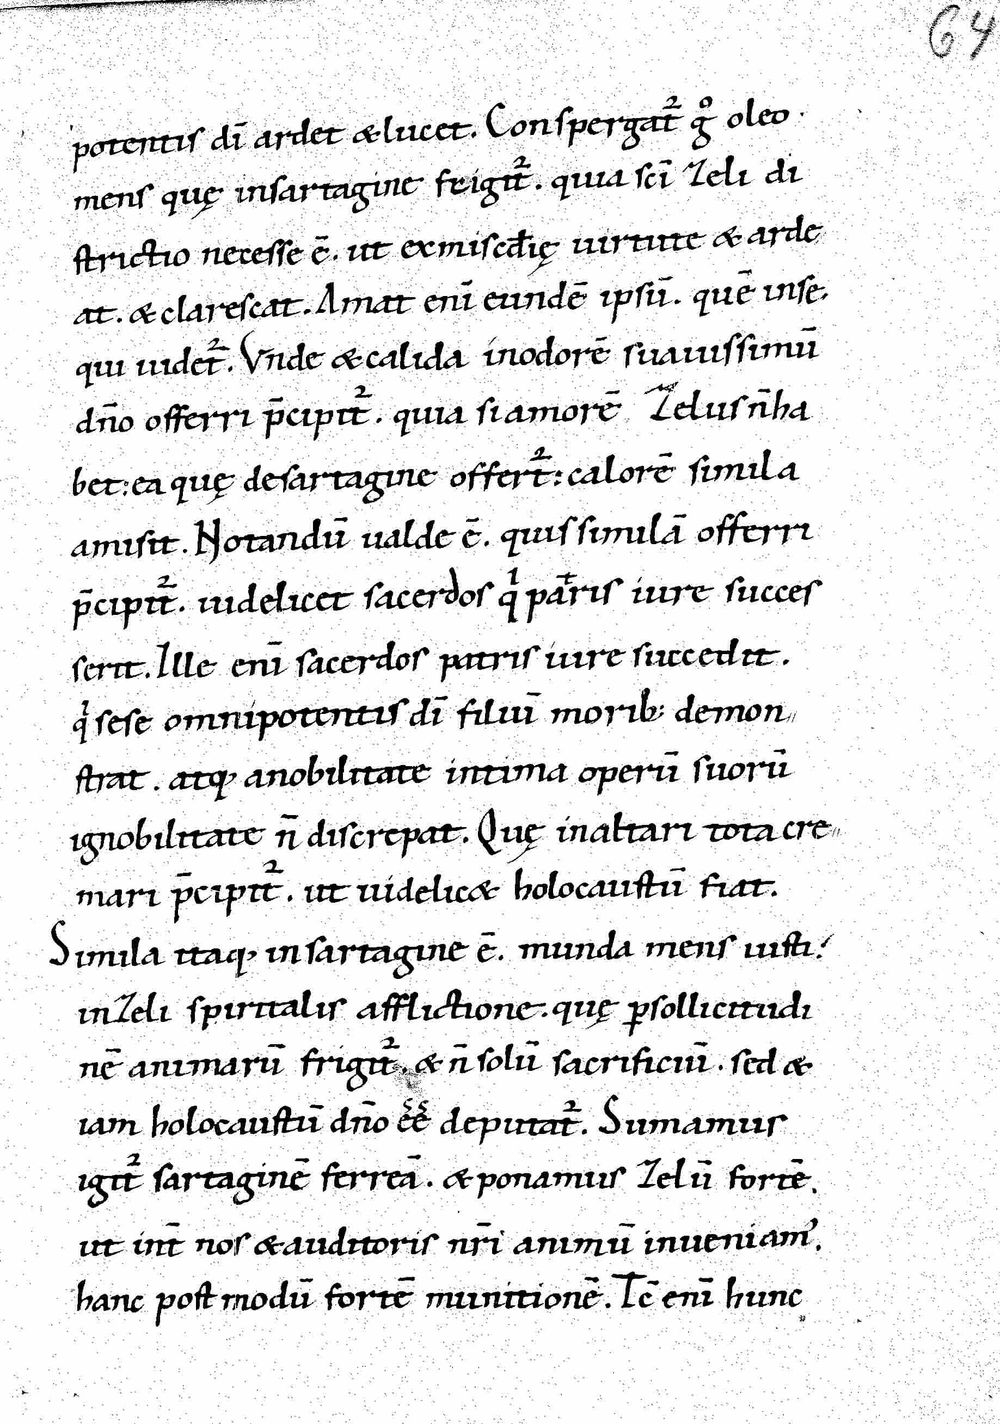 64
potentis dī ardet & lucet. Conspergat̄ᷣ g̊ oleo.
mens quę insartagine frigit̄ᷣ. quia scī zeli di
strictio necesse ē. ut exmiscd̄ię uirtute & arde
at. & clarescat. Amat enī eundē ipsū. quē inse.
qui uidet̄ᷣ. Vnde & calida inodorē suauissimū
dn̄o offerri p̄cipit̄ᷣ. quia siamorē Zelus n̄ ha
bet: ea quę desartagine offert̄ᷣ: calorē simila
amisit. Notandū ualde ē. quis similā offerri
p̄cipit̄ᷣ. uidelicet sacerdos qͥ pat̄ris iure succes
serit. Ille enī sacerdos patris iure succedit.
qͥ sese omnipotentis dī filiū morib; demon,,
strat. atq; anobilitate intima operū suorū
ignobilitate n̄ discrepat. Quę inaltari tota cre,,
mari p̄cipit̄ᷣ. ut uidelic& holocaustū fiat.
Simila itaq; insartagine ē. munda mens iusti.
inzeli spiritalis afflictione. quę ꝑsollicitudi
nē animarū frigit̄ᷣ. & n̄ solū sacrificiū. sed &
iam holocaustū dn̄o ēē deputat̄ᷣ. Sumamus
igit̄ᷣ sartaginē ferreā. & ponamus zelū fortē.
ut int̄ nos & auditoris nr̄i animū inueniam᾽.
hanc post modū fortē munitionē. Tc̄ enī hunc